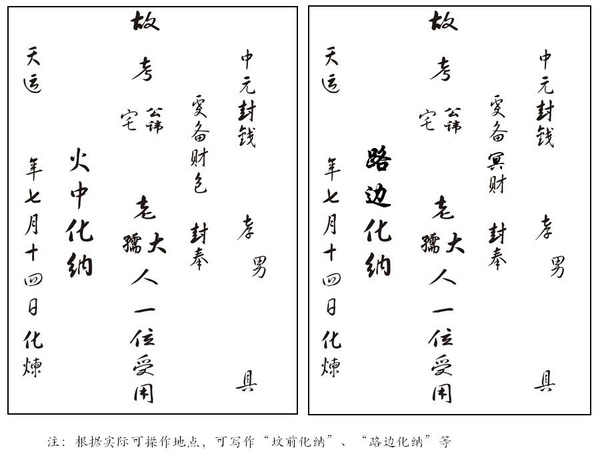 中元封钱 孝男 具
虔备财包 封奉
故考 公讳 宅 老大 孺人一位受用
火中化纳
天运 年七月十四日化煉
中元封钱 孝男 具
虔备冥财 封奉
故考 公讳 宅 老大 孺人一位受用
路边化纳
天运 年七月十四日化煉
注：根据实际可操作地点，可写作“坟前化纳”、“路边化纳”等